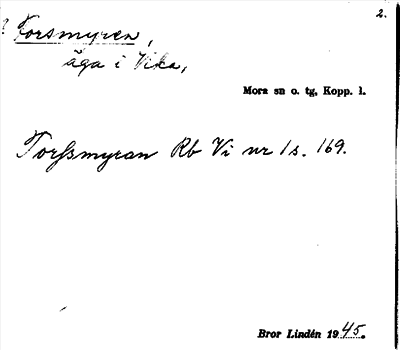 2.
? Torsmyren,
äga i Vika,
Mora sn o. tg, Kopp. l.
Torssmyran Rb Vi nr 1 s. 169.
Bror Lindén 1945.